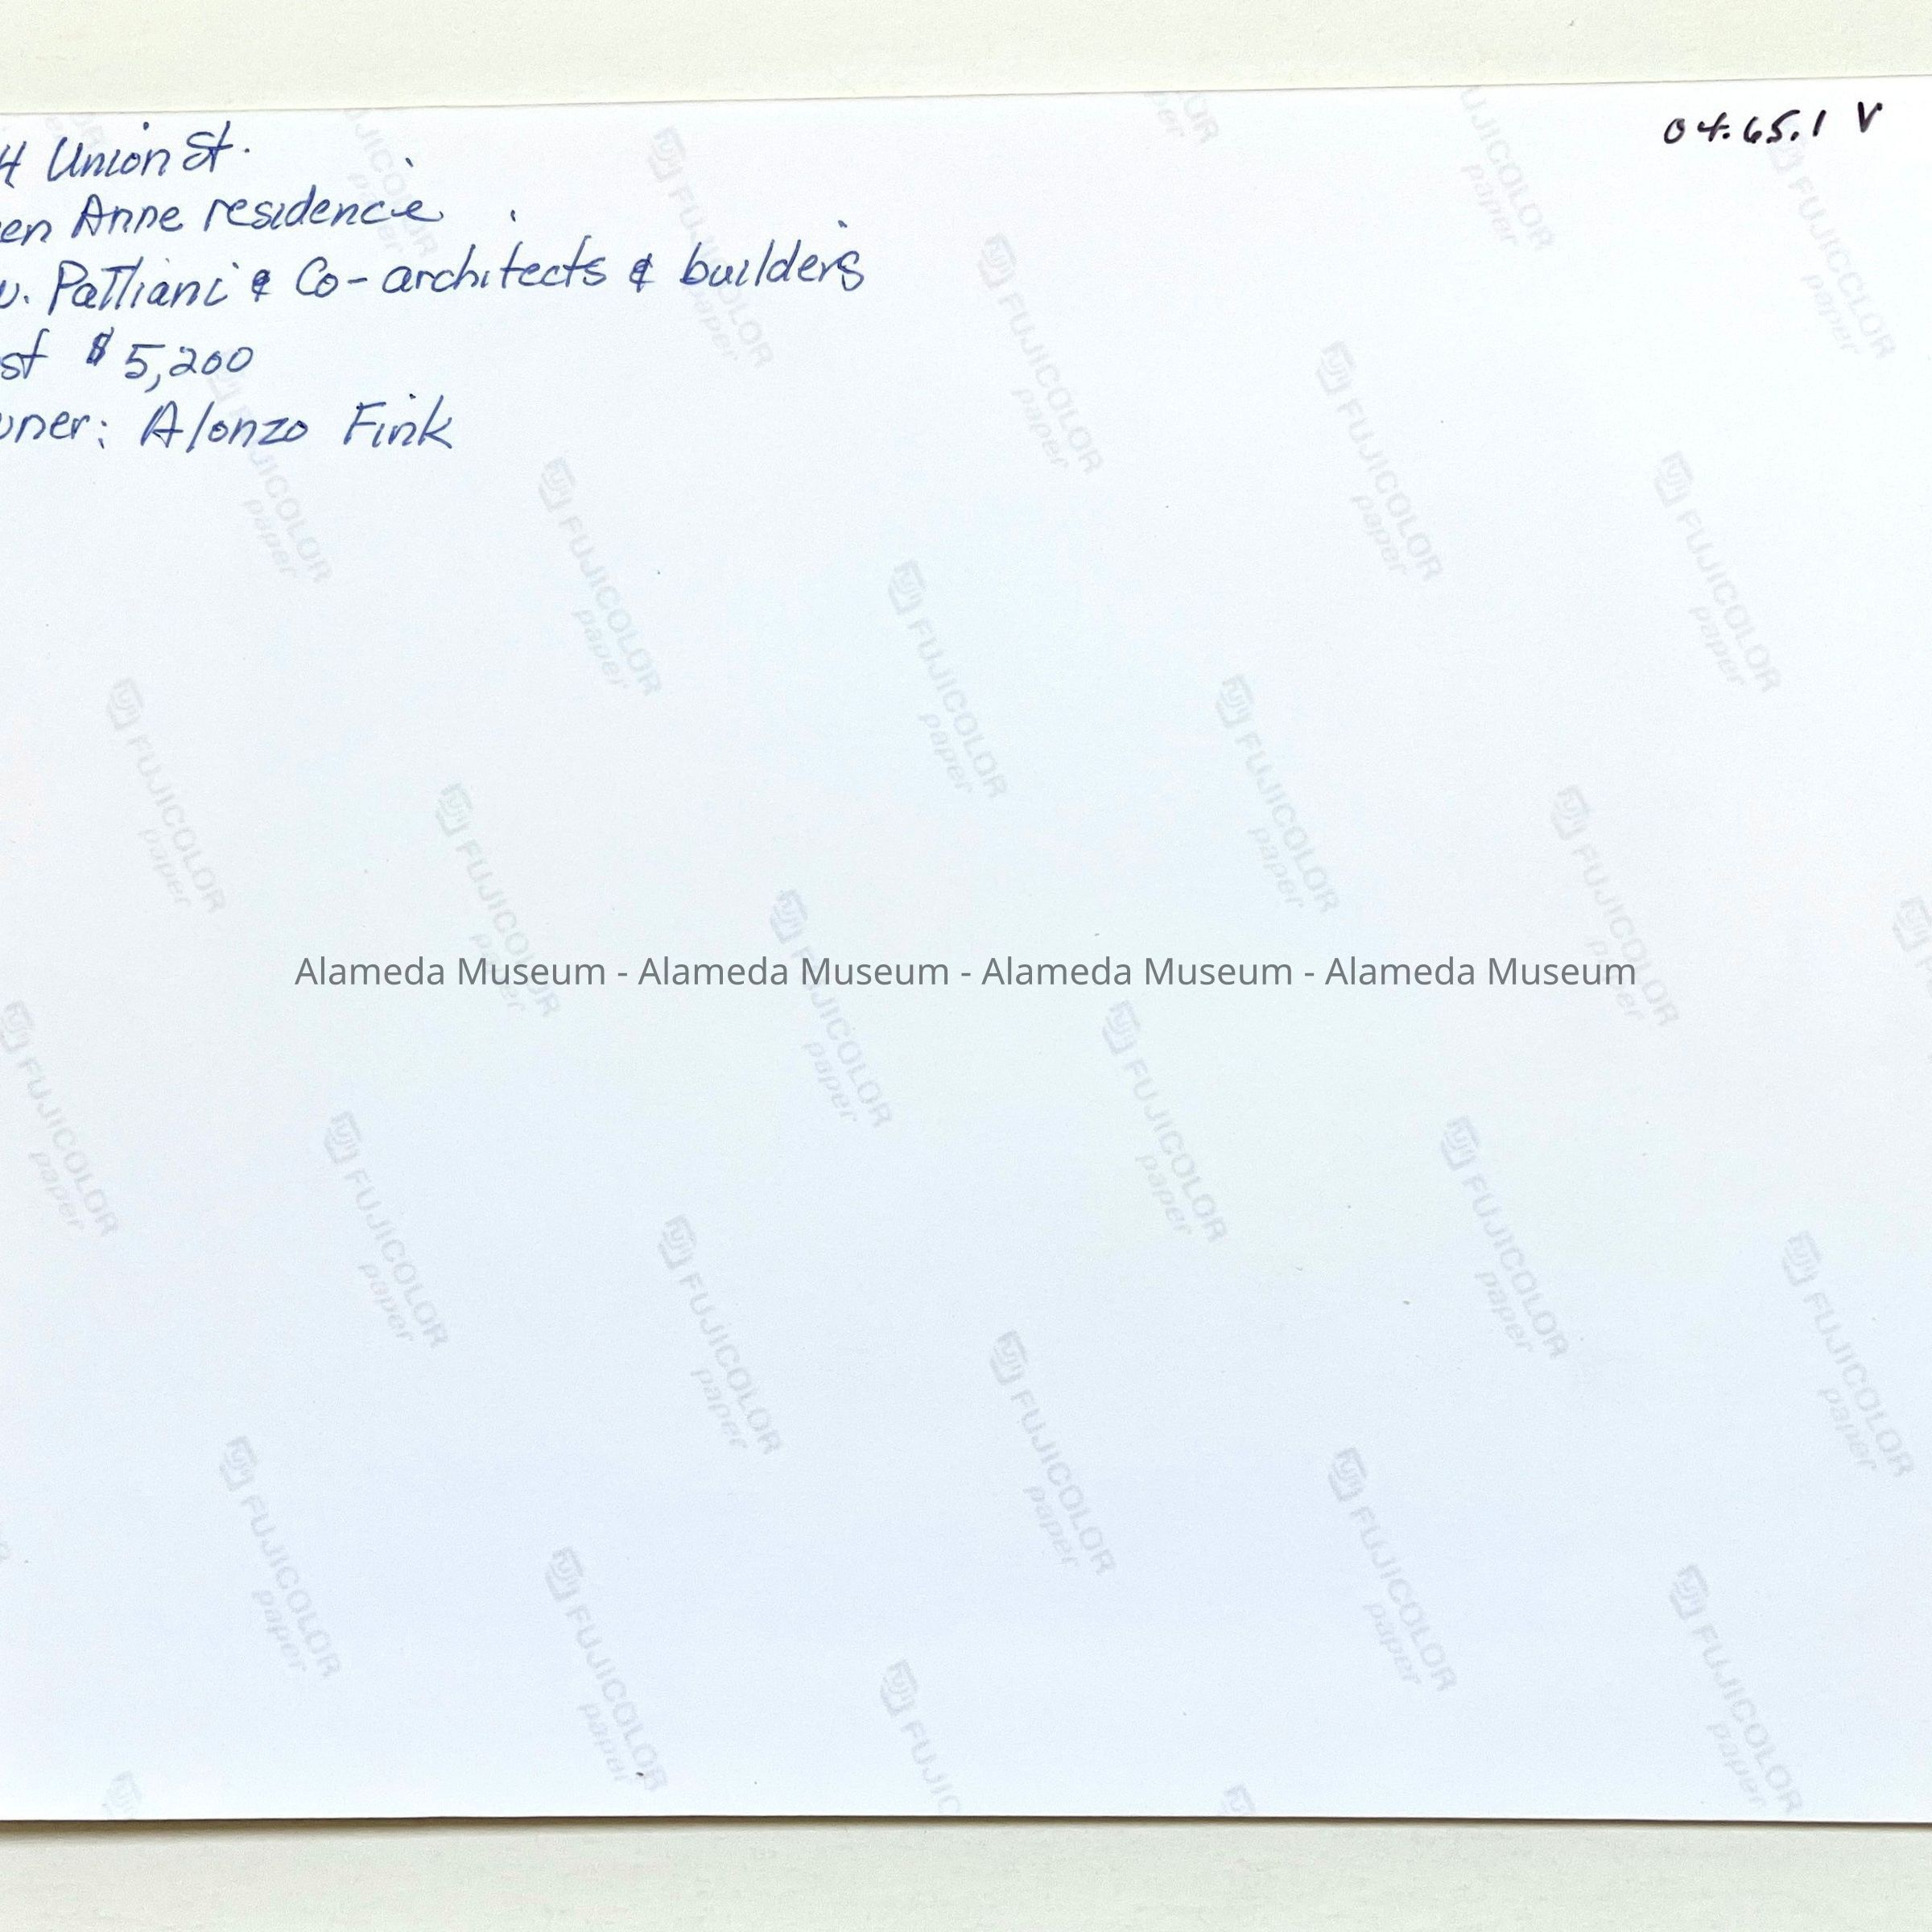 4 Union St.
en Anne residence
w. Pattiani & Co-architects & builders
st $5,200
wner: Alonzo Fink
04.65.1 V
Alameda Museum - Alameda Museum - Alameda Museum - Alameda Museum
FUJICOLOR
paper